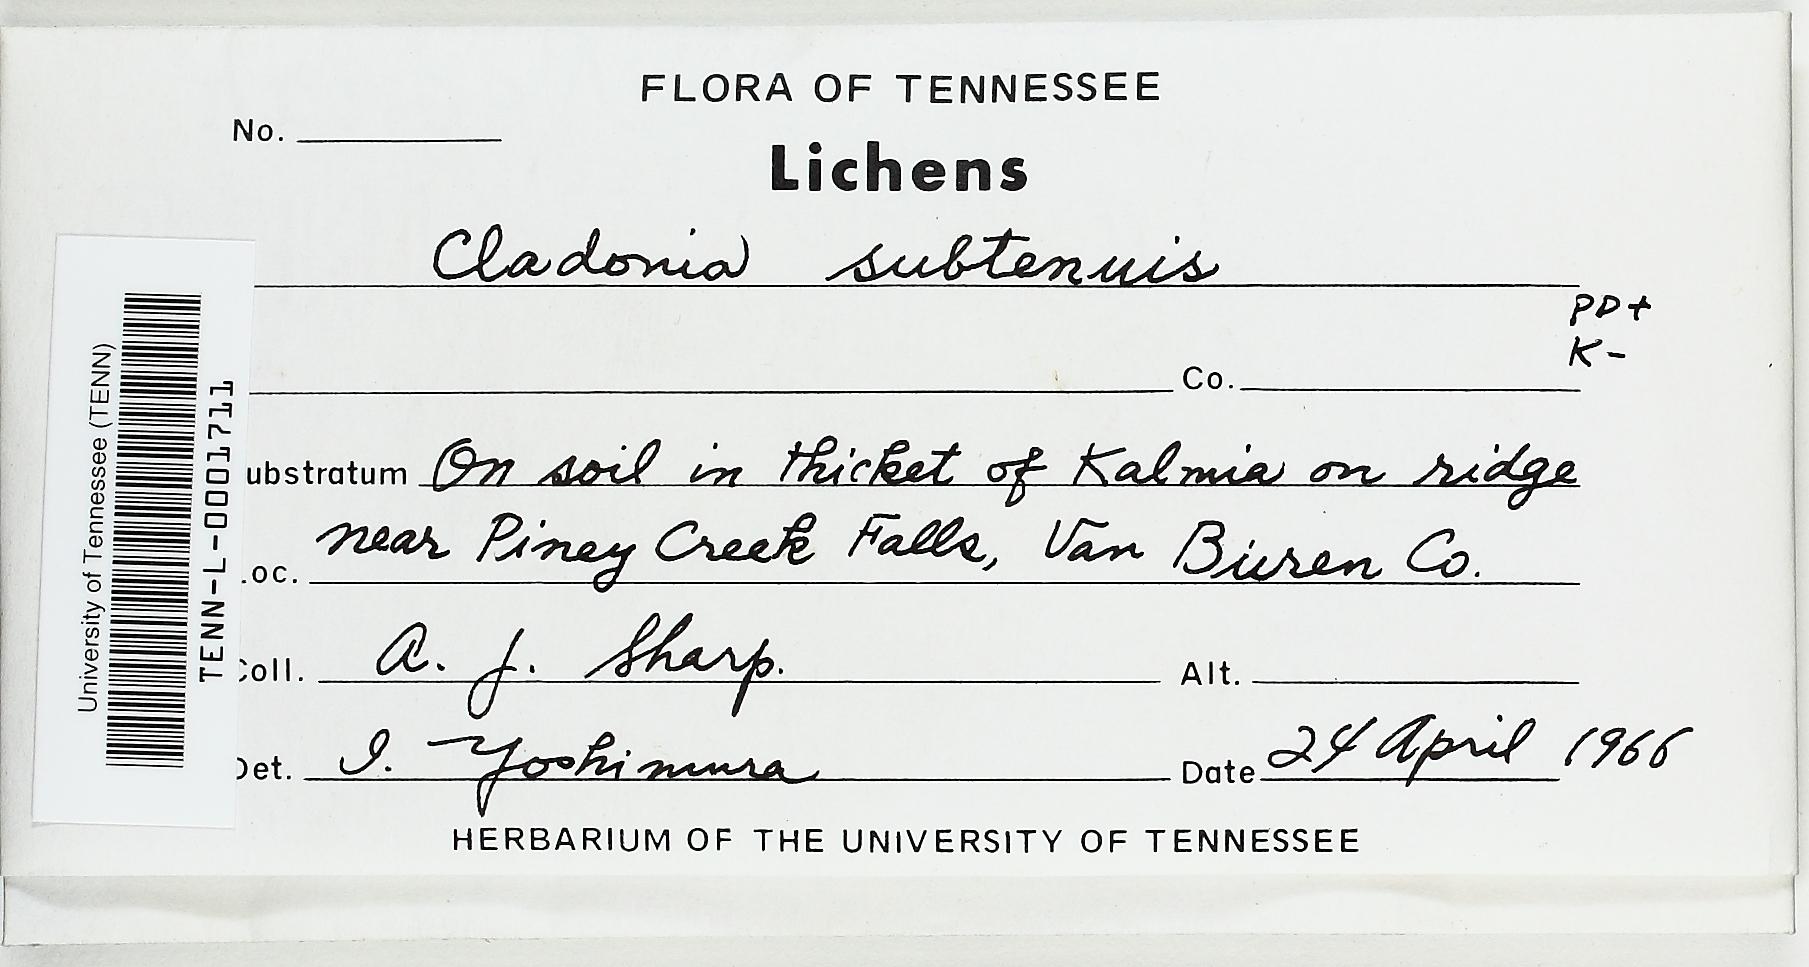 FLORA OF TENNESSEE
No.
Lichens
Cladonia subtenuis
PD+
K-
Co.
ubstratum On soil in thicket of Kalmia on ridge
near Piney Creek Falls, Van Buren Co.
oc.
Coll. A. J. Sharp. Alt.
Det. I. Yoshimura Date 24 April 1966
HERBARIUM OF THE UNIVERSITY OF TENNESSEE
University of Tennessee (TENN)
TENN-L-0001711